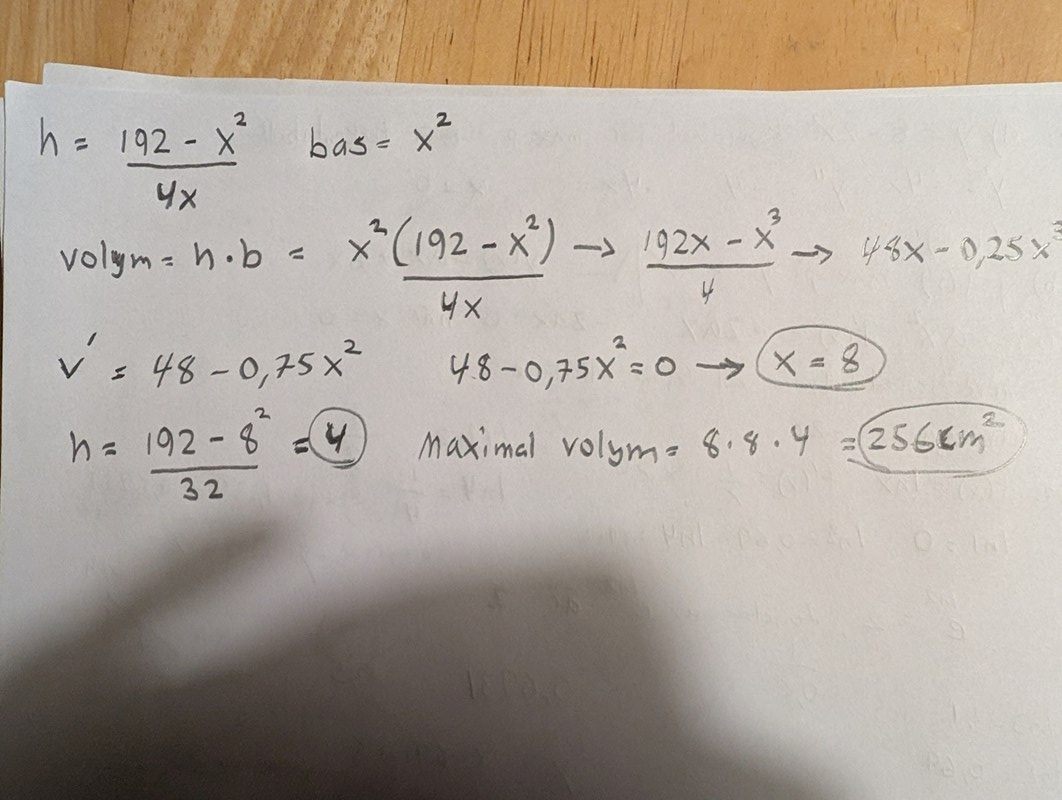 h = (192 - x²)/4x bas = x²
volym = h · b = x²(192 - x²)/4x → (192x - x³)/4 → 48x - 0,25x³
v' = 48 - 0,75x² 48 - 0,75x² = 0 → x = 8
h = (192 - 8²)/32 = 4 Maximal volym = 8 · 8 · 4 = 256cm²